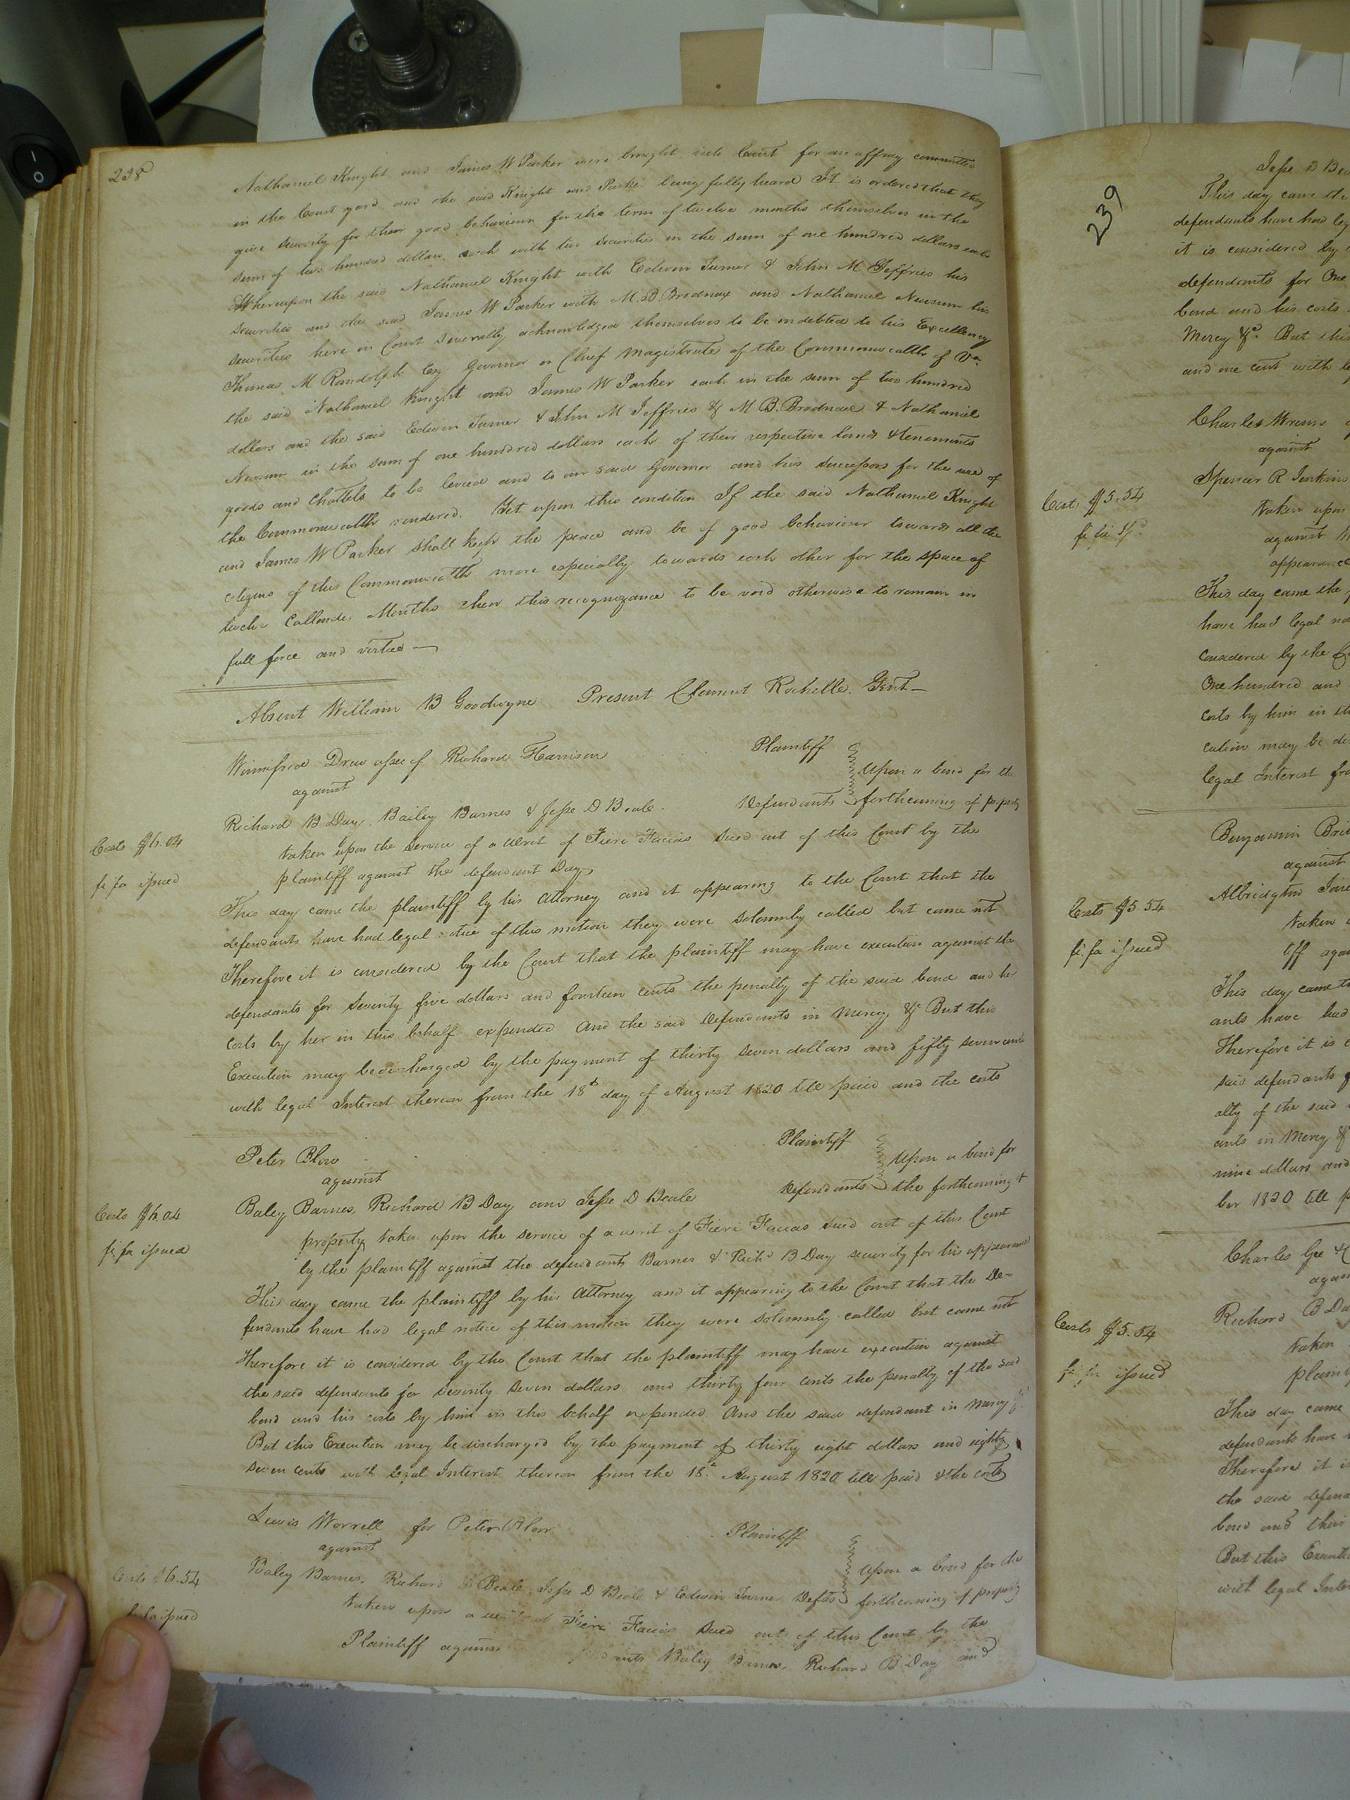 238
Nathaniel Knight and James W Parker were brought into Court for an affray committed
in the Court yard and the said Knight and Parker being fully heard It is ordered that they
give security for their good behaviour for the term of twelve months themselves in the
sum of two hundred dollars each with two securities in the sum of one hundred dollars each
Whereupon the said Nathaniel Knight with Edwin Turner & John M Jeffries his
securities and the said James W Parker with M. B Brodnax and Nathaniel Newsum his
securities here in Court severally acknowledged themselves to be indebted to his Excellency
Thomas M Randolph Esq Governor or Chief Magistrate of the Commonwealth of Va.
the said Nathaniel Knight and James W Parker each in the sum of two hundred
dollars and the said Edwin Turner & John M Jeffries & M B. Brodnax & Nathaniel
Newsum in the sum of one hundred dollars each of their respective lands & tenements
goods and Chattels to be levied and to our said Governor and his Successors for the use of
the Commonwealth rendered. Yet upon this condition If the said Nathaniel Knight
and James W Parker shall keep the peace and be of good behaviour towards all the
citizens of this Commonwealth more especially towards each other for the space of
twelve Callender Months then this recognizance to be void otherwise to remain in
full force and virtue
Absent William B Goodwyne Present Clement Rochelle Gent
Winnefred Drew assee of Richard Harrison Plaintiff
against Upon a bond for the
Richard B Day, Bailey Barnes & Jesse D Beale. Defendants forthcoming of property
Costs $6.04 taken upon the service of a writ of Fiere Facias sued out of this Court by the
fi fa issued plaintiff against the defendant Day
This day came the plaintiff by his Attorney and it appearing to the Court that the
defendants have had legal notice of this motion they were solemnly called but came not
Therefore it is considered by the Court that the plaintiff may have execution against the
defendants for Seventy five dollars and fourteen cents the penalty of the said bond and her
costs by her in this behalf expended And the said Defendants in Mercy &c But this
Execution may be discharged by the payment of thirty seven dollars and fifty seven cents
with legal Interest thereon from the 18th day of August 1820 till paid and the costs
Peter Blow Plaintiff
against Upon a bond for
Baley Barnes, Richard B Day and Jesse D Beale Defendants the forthcoming of
Costs $6.04 property taken upon the service of a writ of Fiere Facias sued out of this Court
fi fa issued by the plaintiff against the defendants Barnes & Richd B Day security for his appearance
This day came the plaintiff by his Attorney and it appearing to the Court that the De-
fendants have had legal notice of this motion they were solemnly called but came not
Therefore it is considered by the Court that the plaintiff may have execution against
the said defendants for Seventy Seven dollars and thirty four cents the penalty of the said
bond and his costs by him in this behalf expended And the said defendant in Mercy &c
But this Execution may be discharged by the payment of thirty eight dollars and eighty
seven cents with legal Interest thereon from the 18th August 1820 till paid & the costs
Lewis Worrell for Peter Blow Plaintiff
against Upon a bond for the
Baley Barnes, Richard Beale, Jesse D Beale & Edwin Turner Defts forthcoming of property
Costs $6.54 taken upon a writ of Fiere Facias sued out of this Court by the
fi fa issued Plaintiff against Baley Barnes, Richard B Day and
239
Jesse D
This day came
defendants have had leg
it is considered by
defendants for One
bond and his costs
Mercy &c. But this
and one cent with
Charles
against
Spencer R Jenkins
Costs $5.54 taken upon
against
appearance
This day came the
have had legal
considered by the
One hundred and
costs by him in
cution may be
legal Interest
Benjamin
against
Albridgton
Costs $5 54 taken
fi. fa issued tiff
This day came
ants have had
Therefore it is
said defendants
alty of the said
ants in Mercy &
nine dollars and
ber 1820 till
Charles Gee &
Costs $5.54 Richard B Da
fi. fa issued taken
This day came
defendants have
Therefore it is
the said
bond and their
But this
with legal